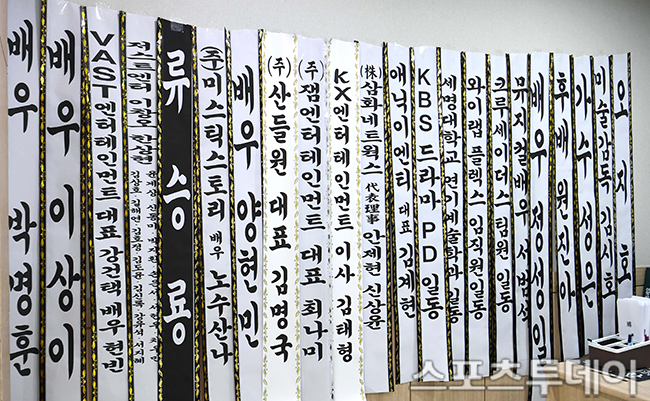 배우 박명훈
배우 이상이
VAST엔터테인먼트 대표 강건택 배우 현빈
류승룡
(주)미스틱스토리 배우 노수산나
배우 양현민
(주)산들원 대표 김명국
(주)잼엔터테인먼트 대표 최나미
KX엔터테인먼트 이사 김태형
(株)삼화네트웍스 代表理事 안제현 신상윤
애닉이엔티 대표 김계현
KBS 드라마 PD 일동
세명대학교 연기예술학과 일동
와이랩 플렉스 임직원 일동
크루세이더스팀원 일동
뮤지컬배우 서범석
배우 정성일
후배 원진아
가수 성은
미술감독 김시호
오지호
스포츠투데이